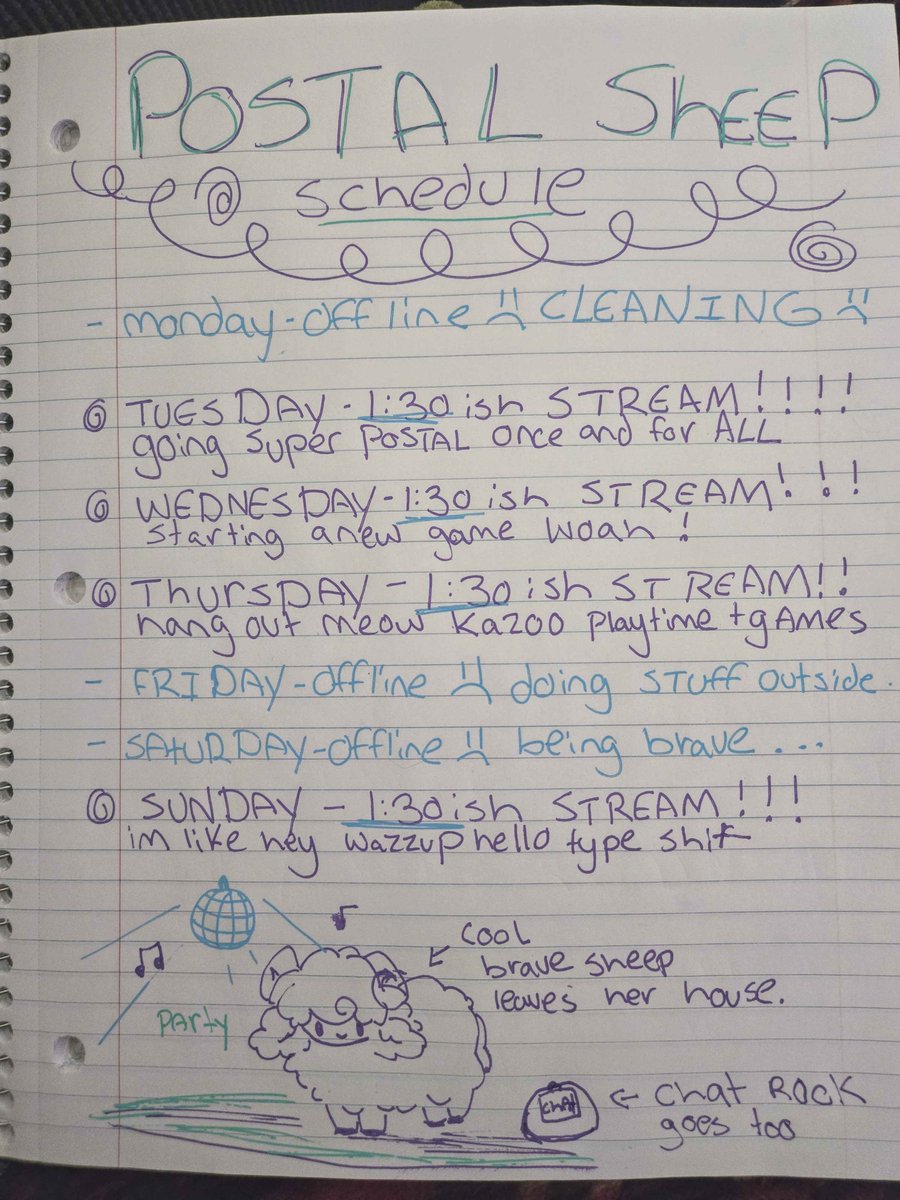 POSTAL ShEEP
schedule
- monday - offline :( CLEANING :(
TUESDAY - 1:30 ish STREAM!!!!
going super POSTAL once and for ALL
WEDNESDAY - 1:30 ish STREAM!!!
starting a new game woah!
ThursDAY - 1:30 ish STREAM!!
hang out meow kazoo playtime + gAMES
- FRIDAY - offline :( doing STUFF outside.
- SATURDAY - offline :( being brave ...
SUNDAY - 1:30 ish STREAM!!!
im like hey wazzup hello type shit
cool
brave sheep
leaves her house.
PArty
CHAT
← Chat ROCK
goes too